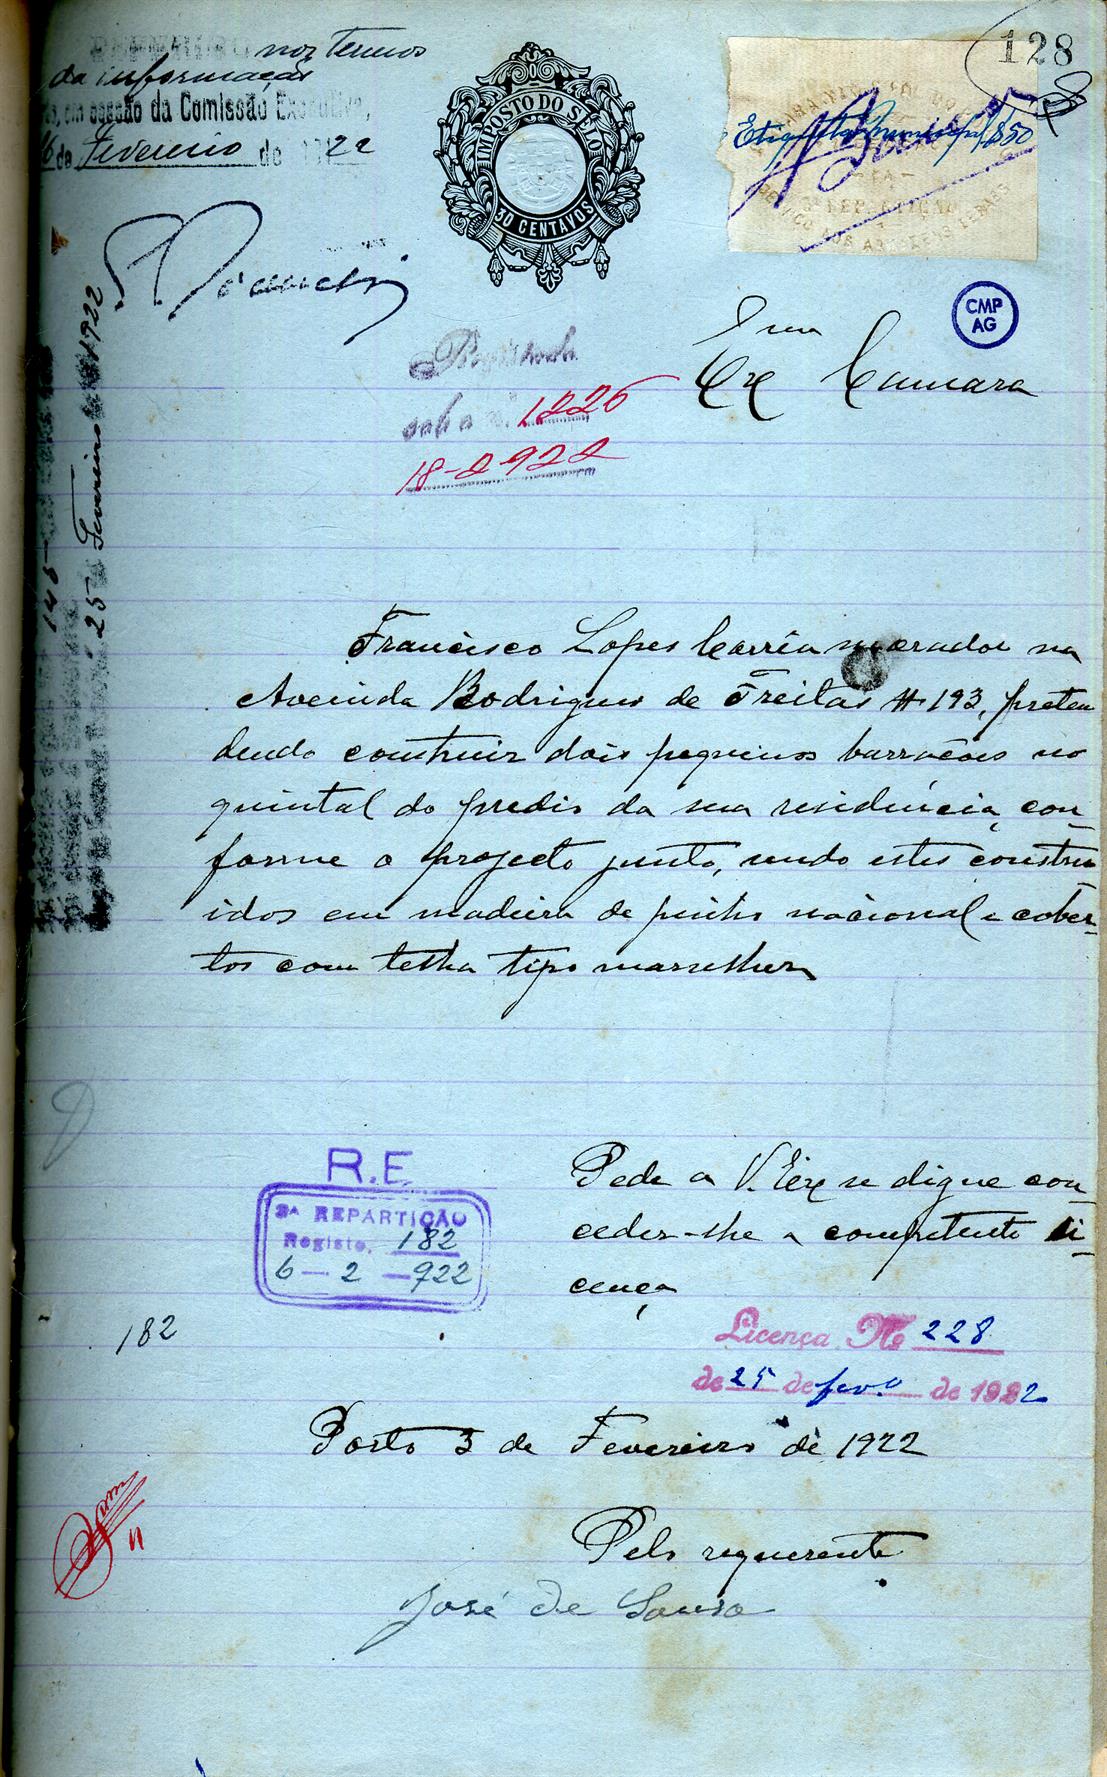 128
DEFERIDO nos termos
da informação
em sessão da Comissão Executiva,
de Fevereiro de 1922
IMPOSTO DO SÊLO
30 CENTAVOS
REPARTIÇÃO
CMP
AG
Exma
Câmara
Registada
sob o n.º 1226
18-2-922
25 Fevereiro 1922
Francisco Lopes Corrêa morador na
Avenida Rodrigues de Freitas # 193, preten
dendo construir dois pequenos barracões no
quintal do predio da sua residência, con-
forme o projecto junto, sendo estes constru
idos em madeira de pinho nacional e cober-
tos com telha tipo marselhez
Pede a V. Exª se digne con-
ceder-lhe a competente li-
cença
R.E.
3ª REPARTIÇÃO
Registo, 182
6-2-922
182
Licença Nº 228
de 25 de fevº de 1922
Porto 3 de Fevereiro de 1922
Pelo requerente
José de Sousa